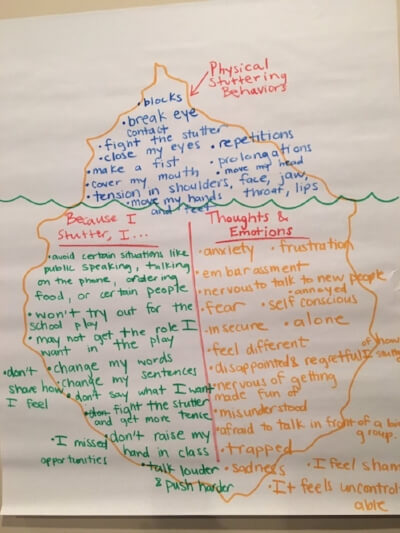 Physical
Stuttering
Behaviors
• blocks
• break eye
contact
• fight the stutter
• repetitions
• close my eyes
• prolongations
• make a fist
• move my head
• cover my mouth
• tension in shoulders, face, jaw,
throat, lips
• move my hands
and feet
Because I
Stutter, I...
• avoid certain situations like
public speaking, talking
on the phone, ordering
food, or certain people
• won't try out for the
school play
• may not get the role I
want in the play
• change my words
• change my sentences
• don't
share how
I feel
• don't say what I want
• fight the stutter
and get more tense
• don't raise my
hand in class
• I missed
opportunities
• talk louder
& push harder
Thoughts &
Emotions
• anxiety
• frustration
• embarassment
• nervous to talk to new people
• annoyed
• fear
• self conscious
• insecure
• alone
• feel different
• disappointed & regretful of how
I stutter
• nervous of getting
made fun of
• misunderstood
• afraid to talk in front of a big
group.
• trapped
• sadness
• I feel sham
• It feels uncontrol
able